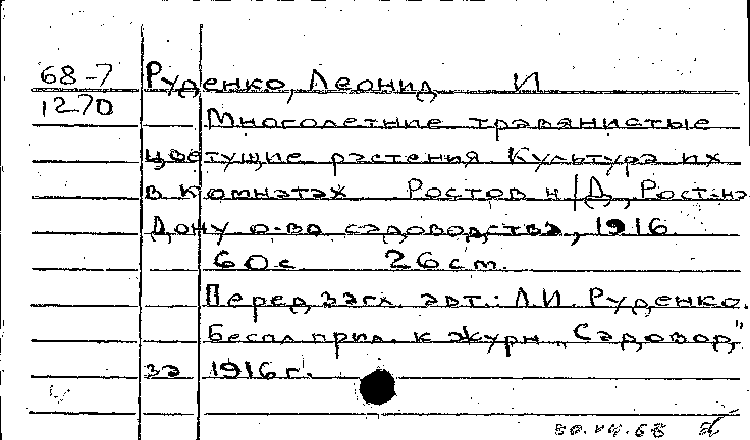 68-7 Руденко, Леонид И
1270 Многолетние травянистые
цветущие растения. Культура их
в комнатах Ростов н/Д, Рост.-на-
Дону о-во садоводства, 1916.
60 с. 26 cm.
Перед загл. авт.: Л.И. Руденко.
Беспл. прил. к журн. „Садовод"
за 1916 г.